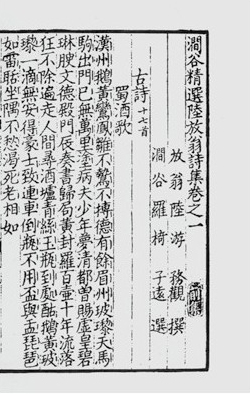 澗谷精選陸放翁詩集卷之一
放翁陸游 務觀 撰
澗谷羅椅 子遠 選
古詩 十七首
蜀酒歌
漢州鵝黃鸞鳳雛不鷙不搏德有餘眉州玻瓈天馬
駒出門已無萬里塗病夫少年夢清都曾賜虛皇碧
琳腴文德殿門晨奏書歸局黃封羅百壺十年流落
狂不除遍走人間尋酒壚青絲玉瓶到處酤鵝黃玻
瓈一滴無安得豪士致連車倒瓶不用盃與盂琵琶
如雷聒坐隅不愁渴死老相如